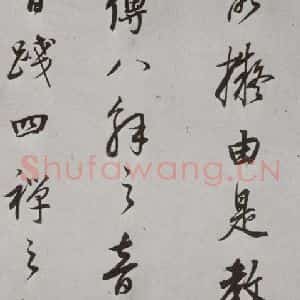 擬由是教
傳八解之音
踐四禪之
Shufawang.CN